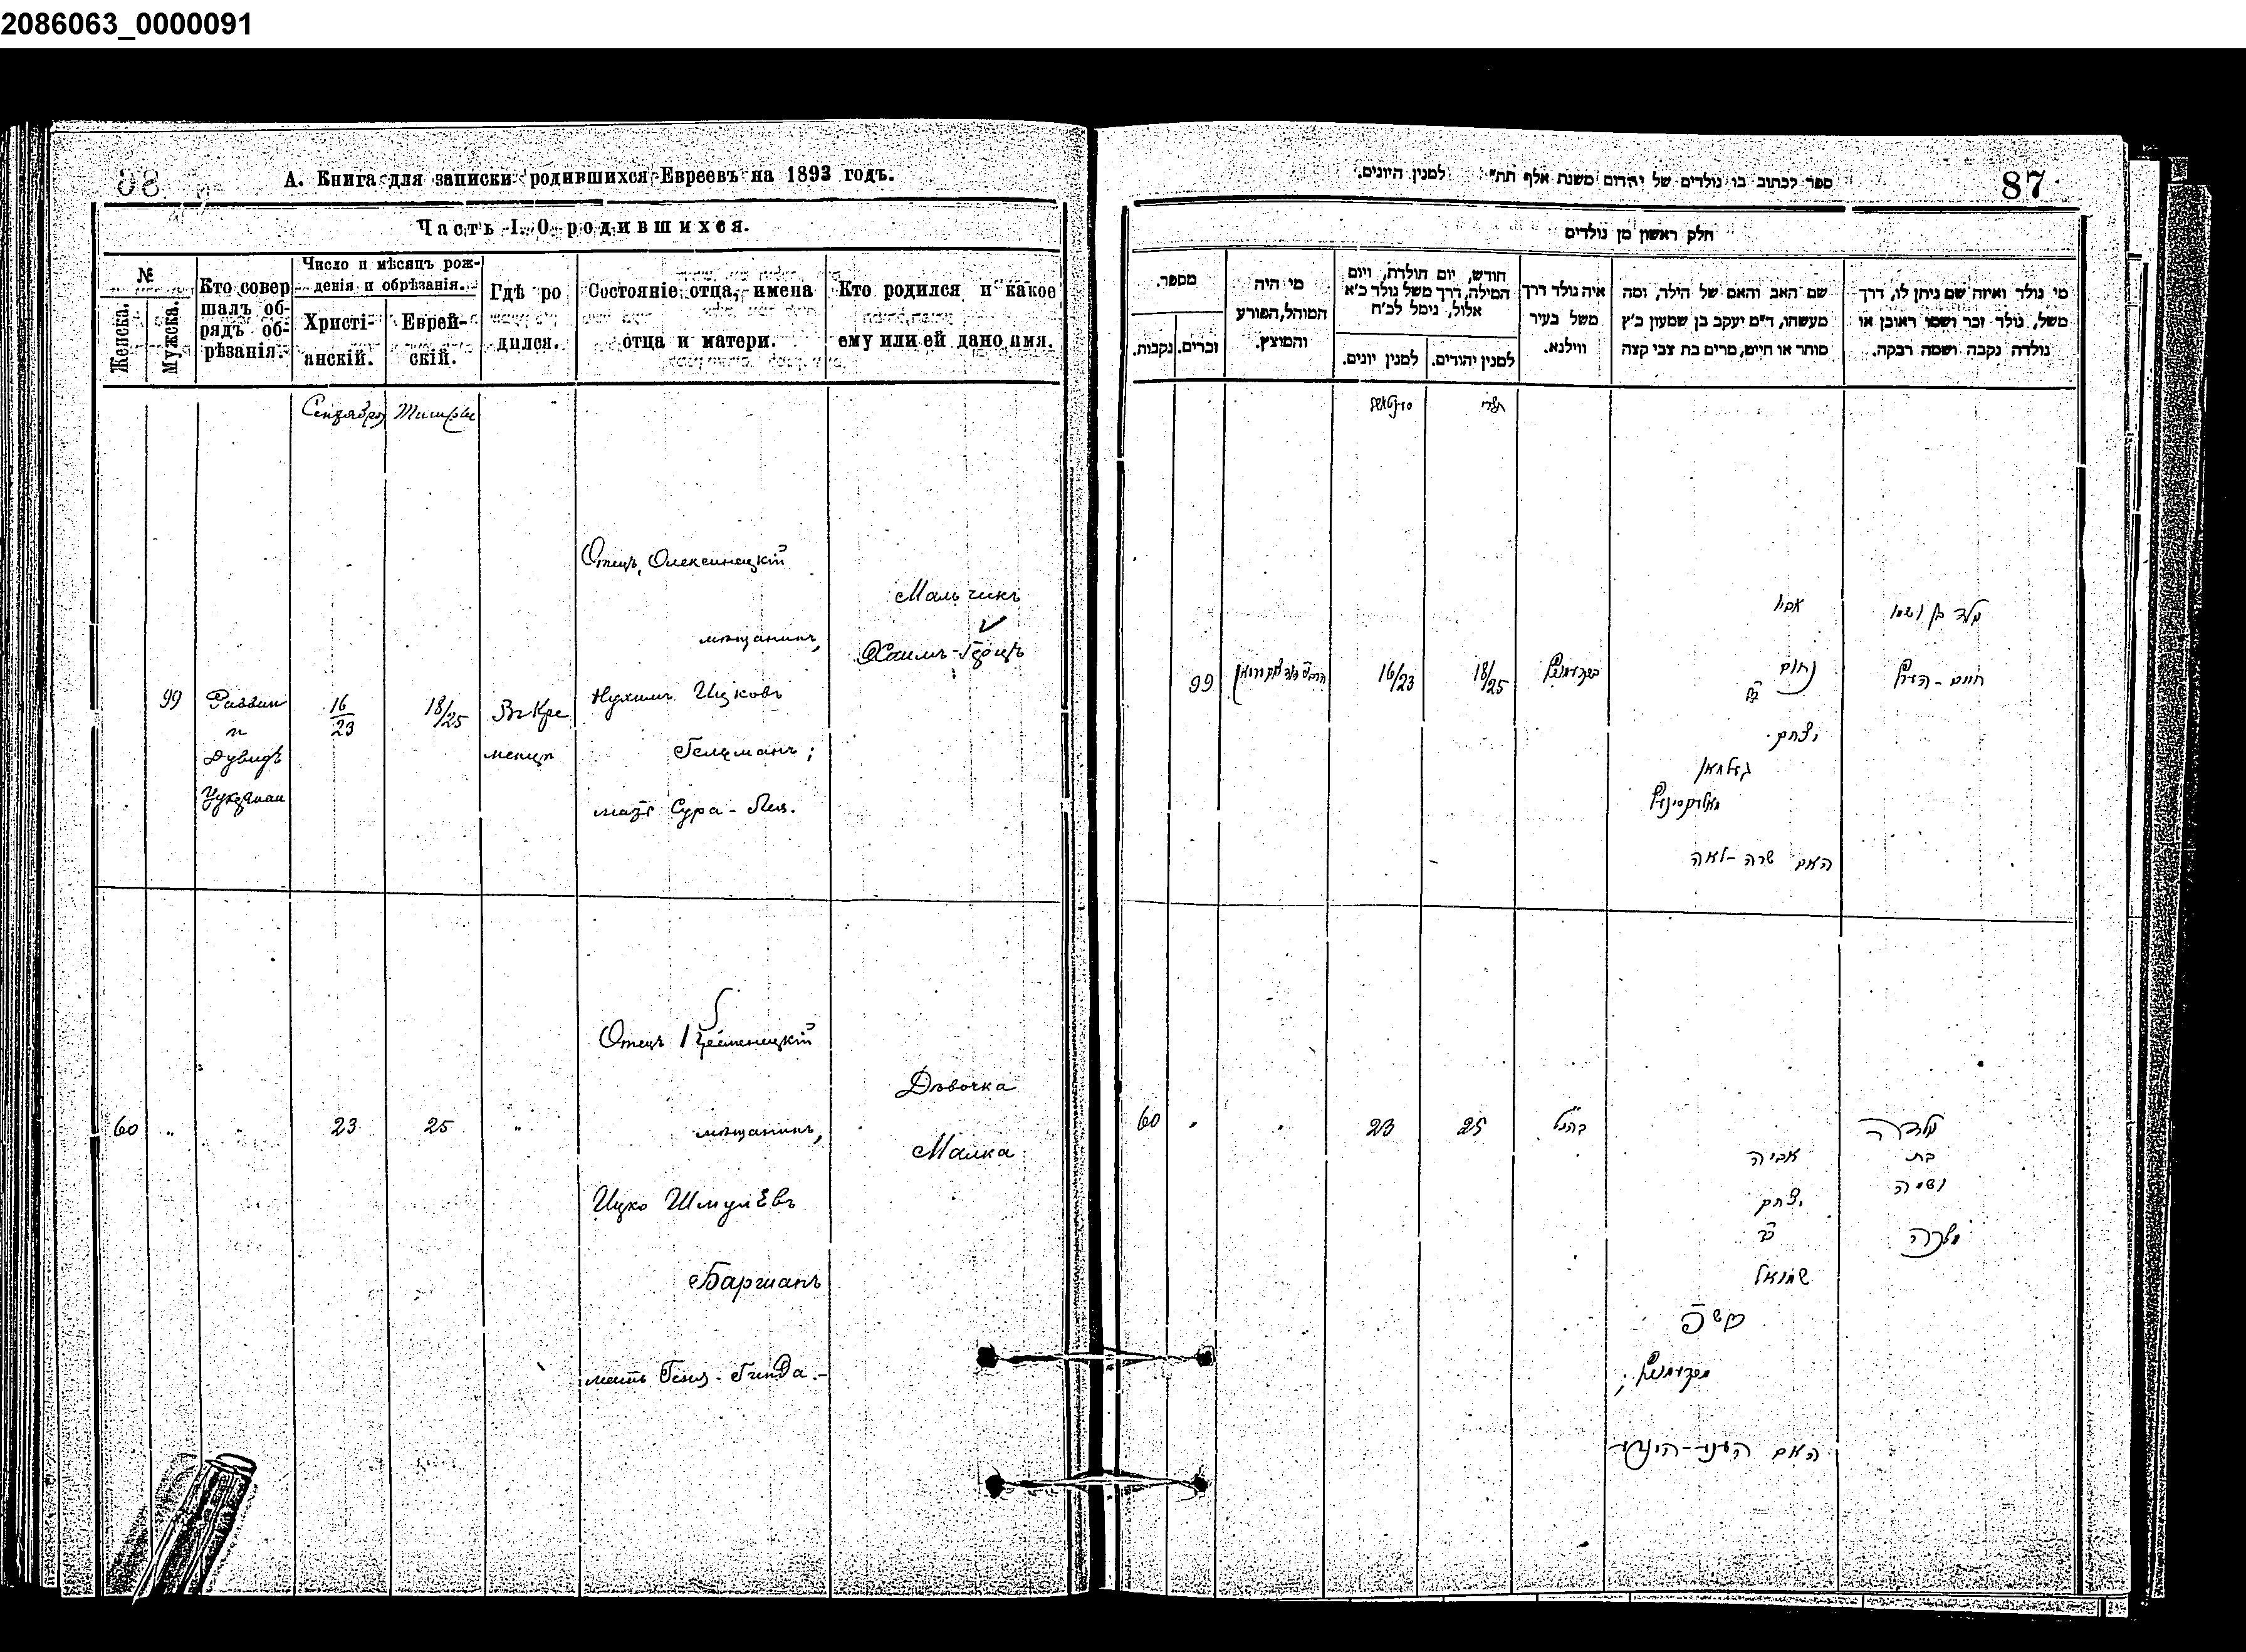 2086063_0000091
А. Книга для записки родившихся Евреевъ на 1893 годъ.
Часть I. О родившихся.
№
Женска.
Мужска.
Кто совер
шалъ об-
рядъ об-
рѣзанія.
Число и мѣсяцъ рож-
денія и обрѣзанія.
Христі-
анскій.
Еврей-
скій.
Гдѣ ро
дился.
Состояніе отца, имена
отца и матери.
Кто родился и какое
ему или ей дано имя.
Сентября Тишри
99
Раввин
и
Дувидъ
Цукерман
16/23
18/25
Въ Кре
менцѣ
Отецъ, Олексинецкій
мѣщанинъ,
Нухимъ Ицковъ
Гельманъ;
мать Сура-Леа.
Мальчикъ
Хаимъ-Герцъ
60
"
"
23
25
"
Отецъ Кременецкій
мѣщанинъ,
Ицко Шмулевъ
Баршапъ
мать Геня-Гинда.-
Дѣвочка
Малка
ספר לכתוב בו נולדים של יהדום משנת אלף תת" למנין היונים.
87
חלק ראשון מן נולדים
מספר.
נקבות.
זכרים.
מי היה
המוהל, הפורע
והמוצץ.
חודש, יום הולדת, ויום
המילה, דרך משל נולד כ"א
אלול, נימל לכ"ח
למנין יונים.
למנין יהודים.
איה נולד דרך
משל בעיר
ווילנא.
שם האב והאם של הילד, ומה
מעשהו, ד"מ יעקב בן שמעון כ"ץ
סוחר או חייט, מרים בת צבי קצה
מי נולד ואיזה שם ניתן לו, דרך
משל, נולד זכר ושמו ראובן או
נולדה נקבה ושמה רבקה.
תשרי
99
16/23
18/25
אביו
נחום
ב"ר
יצחק
געלמאן
האם שרה-לאה
נולד בן ושמו
חיים-הערץ
60
"
"
23
25
אביה
יצחק
ב"ר
שמואל
נולדה
בת
ושמה
מלכה